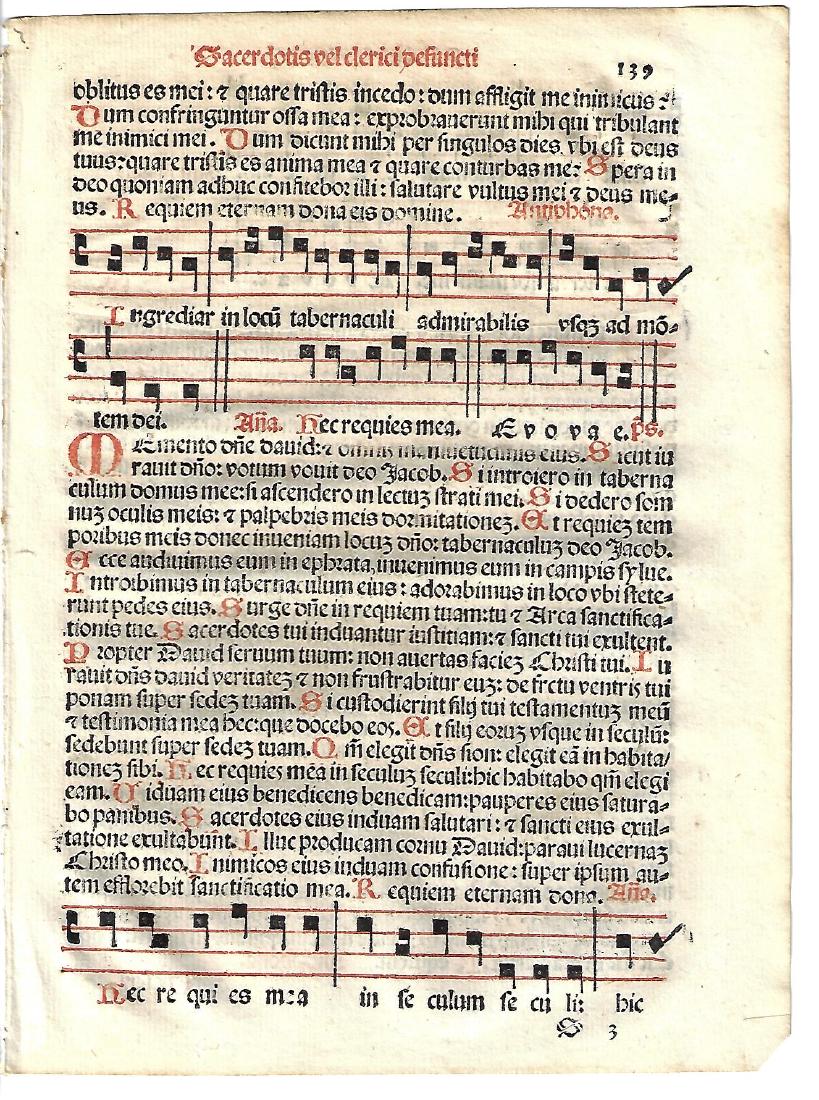 Sacerdotis vel clerici defuncti
139
oblitus es mei: ⁊ quare tristis incedo: dum affligit me inimicus ?
Dum confringuntur ossa mea: exprobrauerunt mihi qui tribulant
me inimici mei. Dum dicunt mihi per singulos dies. vbi est deus
tuus: quare tristis es anima mea ⁊ quare conturbas me: Spera in
deo quoniam adhuc confitebor illi: salutare vultus mei ⁊ deus me-
us. Requiem eternam dona eis domine. Antiphona.
Ingrediar in locū tabernaculi admirabilis vsqꝫ ad mō-
tem dei. Aña. Hec requies mea. E v o v a e. ps.
MEmento dñe dauid: ⁊ omnis mansuetudinis eius. Sicut iu
rauit dño: votum vouit deo Jacob. Si introiero in taberna
culum domus mee: si ascendero in lectuꝫ strati mei. Si dedero som
nuꝫ oculis meis: ⁊ palpebris meis dormitationeꝫ. Et requieꝫ tem
poribus meis donec inueniam locuꝫ dño: tabernaculuꝫ deo Jacob.
Ecce audiuimus eum in ephrata, inuenimus eum in campis sylue.
Introibimus in tabernaculum eius: adorabimus in loco vbi stete-
runt pedes eius. Surge dñe in requiem tuam: tu ⁊ Arca sanctifica-
tionis tue. Sacerdotes tui induantur iustitiam: ⁊ sancti tui exultent.
Propter Dauid seruum tuum: non auertas facieꝫ Christi tui. Iu
rauit dñs dauid veritateꝫ ⁊ non frustrabitur euꝫ: de frctu ventris tui
ponam super sedeꝫ tuam. Si custodierint filij tui testamentuꝫ meū
⁊ testimonia mea hec: que docebo eos. Et filij eoruꝫ vsque in seculū:
sedebunt super sedeꝫ tuam. Qm̄ elegit dñs sion: elegit eā in habita/
tioneꝫ sibi. Hec requies mea in seculuꝫ seculi: hic habitabo qm̄ elegi
eam. Viduam eius benedicens benedicam: pauperes eius satura-
bo panibus. Sacerdotes eius induam salutari: ⁊ sancti eius exul-
tatione exultabunt. Illuc producam cornu Dauid: paraui lucernaꝫ
Christo meo. Inimicos eius induam confusione: super ipsum au-
tem efflorebit sanctificatio mea. Requiem eternam dona. Aña.
Hec re qui es mea in se culum se cu li: hic
S 3